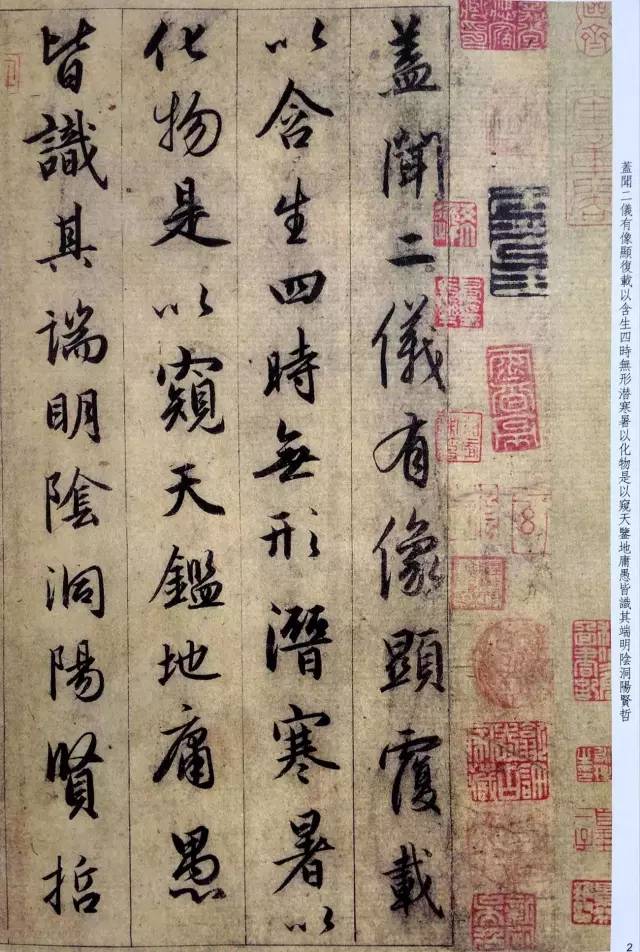 蓋聞二儀有像顯復載以含生四時無形潜寒暑以化物是以窺天鑒地庸愚皆識其端明陰洞陽賢哲
蓋聞二儀有像顯覆載
以含生四時無形潛寒暑以
化物是以窺天鑑地庸愚
皆識其端明陰洞陽賢哲
2